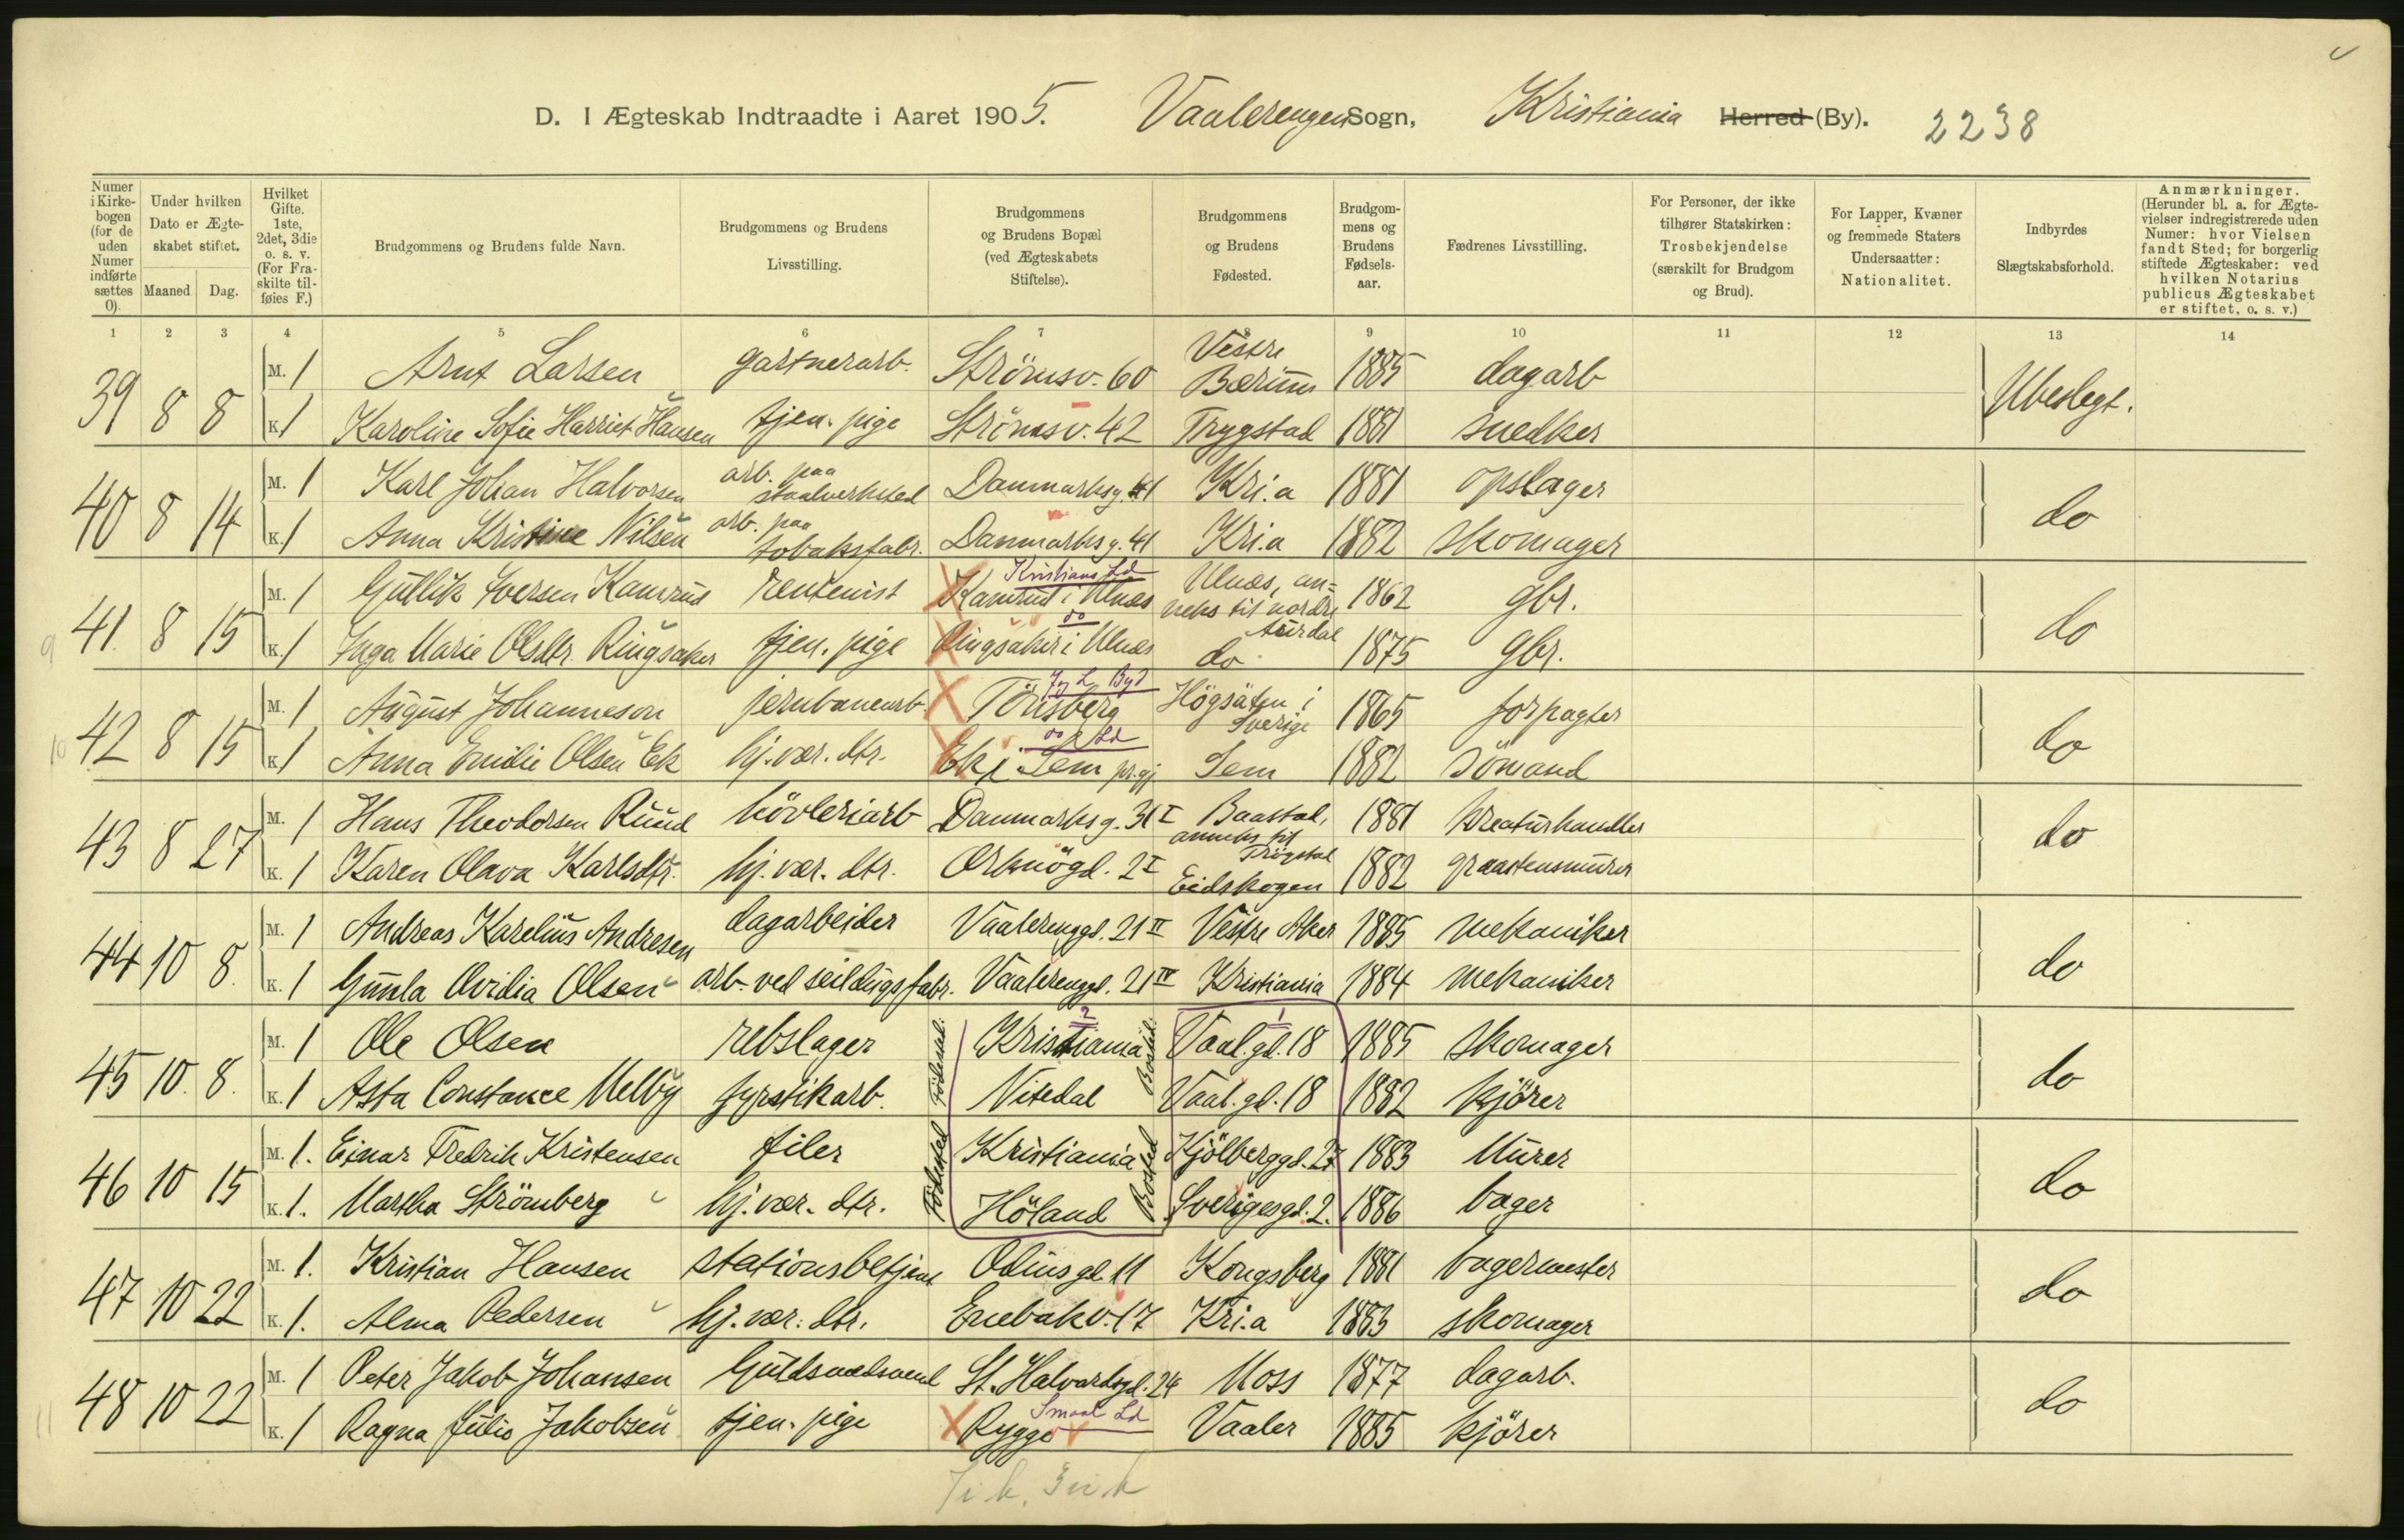 D. I Ægteskab Indtraadte i Aaret 1905. Vaalerengen Sogn, Kristiania Herred (By). 2238
Numer i Kirkebogen (for de uden Numer indførte sættes 0).
Under hvilken Dato er Ægteskabet stiftet. Maaned Dag.
Hvilket Gifte. 1ste, 2det, 3die o. s. v. (For Fraskilte tilføies F.)
Brudgommens og Brudens fulde Navn.
Brudgommens og Brudens Livsstilling.
Brudgommens og Brudens Bopæl (ved Ægteskabets Stiftelse).
Brudgommens og Brudens Fødested.
Brudgommens og Brudens Fødselsaar.
Fædrenes Livsstilling.
For Personer, der ikke tilhører Statskirken: Trosbekjendelse (særskilt for Brudgom og Brud).
For Lapper, Kvæner og fremmede Staters Undersaatter: Nationalitet.
Indbyrdes Slægtskabsforhold.
Anmærkninger. (Herunder bl. a. for Ægtevielser indregistrerede uden Numer: hvor Vielsen fandt Sted; for borgerlig stiftede Ægteskaber: ved hvilken Notarius publicus Ægteskabet er stiftet, o. s. v.)
1 2 3 4 5 6 7 8 9 10 11 12 13 14
39 8 8 M. 1 Arnt Larsen gartnerarb. Strömsv. 60 Vestre Bærum 1885 dagarb Ubeslegt.
K. 1 Karoline Sofie Harriet Hansen tjen. pige Strömsv. 42 Trygstad 1881 snedker
40 8 14 M. 1 Karl Johan Halvorsen arb. paa staalverksted Danmarksg. 41 Kri.a 1881 opslager do
K. 1 Anna Kristine Nilsen arb. paa tobaksfabr. Danmarksg. 41 Kri.a 1882 skomager
41. 8 15 M. 1 Gullik Iversen Kamrud rentenist Kamrud i Ulnes Kristians Ld Ulnes, anneks til nordre Aurdal 1862 gbr. do
9 K. 1 Inga Marie Olsdtr. Ringsaker tjen. pige Ringsaker i Ulnes do do 1875 gbr.
42 8 15 M. 1 August Johanneson jernbanearb. Tönsberg J. L. Byd Högsäter i Sverige 1865 forpagter do
10 K. 1 Anna Emilie Olsen Ek hj. vær. dtr. Ek i Sem pr.gj. do Ld Sem 1882 Sömand
43 8 27 M. 1 Hans Theodorsen Ruud hövleriarb Danmarksg. 31 I Baastad, anneks til Trögstad 1881 kreaturhandler do
K. 1 Karen Olava Karlsdtr. hj. vær. dtr. Orknögd. 2 I Eidskogen 1882 graastensmurer
44 10 8. M. 1 Andreas Karelius Andresen dagarbeider Vaalerenggd. 21 II Vestre Aker 1885 mekaniker do
K. 1 Gunda Ovidia Olsen arb. ved seildugsfabr. Vaalerenggd. 21 IV Kristiania 1884 mekaniker
45 10. 8. M. 1 Ole Olsen rebslager Födested: Kristiania 2 Bosted: Vaal. gd. 18 1 1885 skomager do
K. 1 Asta Constance Melby fyrstikarb. Nitedal Vaal. gd. 18 1882 kjörer
46 10 15 M. 1. Einar Fredrik Kristensen filer Födested Kristiania Bosted Kjölberggd. 27 1883 Murer do
K. 1. Martha Strömberg hj. vær. dtr. Höland Sverigesgd. 2. 1886 bager
47 10 22 M. 1. Kristian Hansen stationsbetjent Odinsgd. 11 Kongsberg 1881 bagermester do
K. 1. Alma Pedersen hj. vær. dtr. Enebakv. 17 Kri.a 1883 skomager
48 10 22 M. 1 Peter Jakob Johansen Guldsmedsvend St. Halvardsgd. 24 Moss 1877 dagarb. do
11 K. 1 Ragna Julie Jakobsen tjen. pige Rygge Smaal Ld Vaaler 1885 kjörer